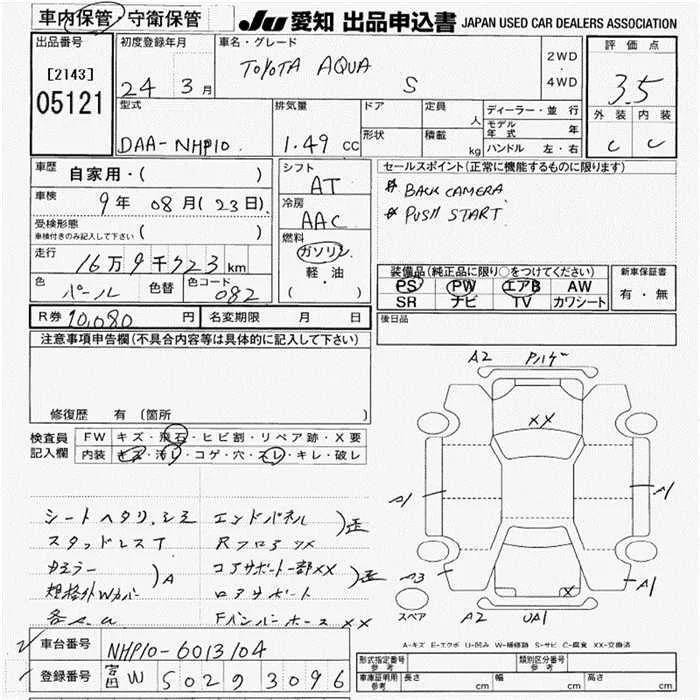 車内保管・守衛保管
JU 愛知 出品申込書 JAPAN USED CAR DEALERS ASSOCIATION
出品番号
[2143]
05121
初度登録年月
24 3月
車名・グレード
TOYOTA AQUA S
2WD
・
4WD
評価点
3.5
外装 内装
C C
型式
DAA-NHP10
排気量
1.49 cc
ドア
形状
定員 人
積載 kg
ディーラー・並行
モデル年式 年
ハンドル 左・右
車歴 自家用・( )
車検 9年 08月(23日)
受検形態
車検付きのみ記入して下さい ( )
走行 16万9千723km
色 パール 色替 色コード 082
シフト
AT
冷房
AAC
燃料
ガソリン
軽・油
( )
セールスポイント(正常に機能するものに限ります)
* BACK CAMERA
* PUSH START
装備品(純正品に限り○をつけてください)
PS PW エアB AW
SR ナビ TV カワシート
新車保証書
有・無
後日品
R券 10,080円 名変期限 月 日
注意事項申告欄(不具合内容等は具体的に記入して下さい)
修復歴 有 (箇所 )
検査員
記入欄
FW キズ・飛石・ヒビ割・リペア跡・X要
内装 キズ・汚レ・コゲ・穴・スレ・キレ・破レ
シートヘタリ.シミ
スタッドレスT
規格外Wカバー
A
エンドパネル 歪
Rフロア XX
コアサポート一部XX 歪
ロアサポート
Fバンパーホース XX
A2
XX
A1
A1
A3
A1
X
スペア
A2 UA1
A-キズ E-エクボ U-凹み W-補修跡 S-サビ C-腐食 XX-交換済
車台番号 NHP10-6013104
登録番号 富W 50293096
形式指定番号
参考
類別区分番号
参考
車庫証明用
参考
長さ cm 幅 cm 高さ cm